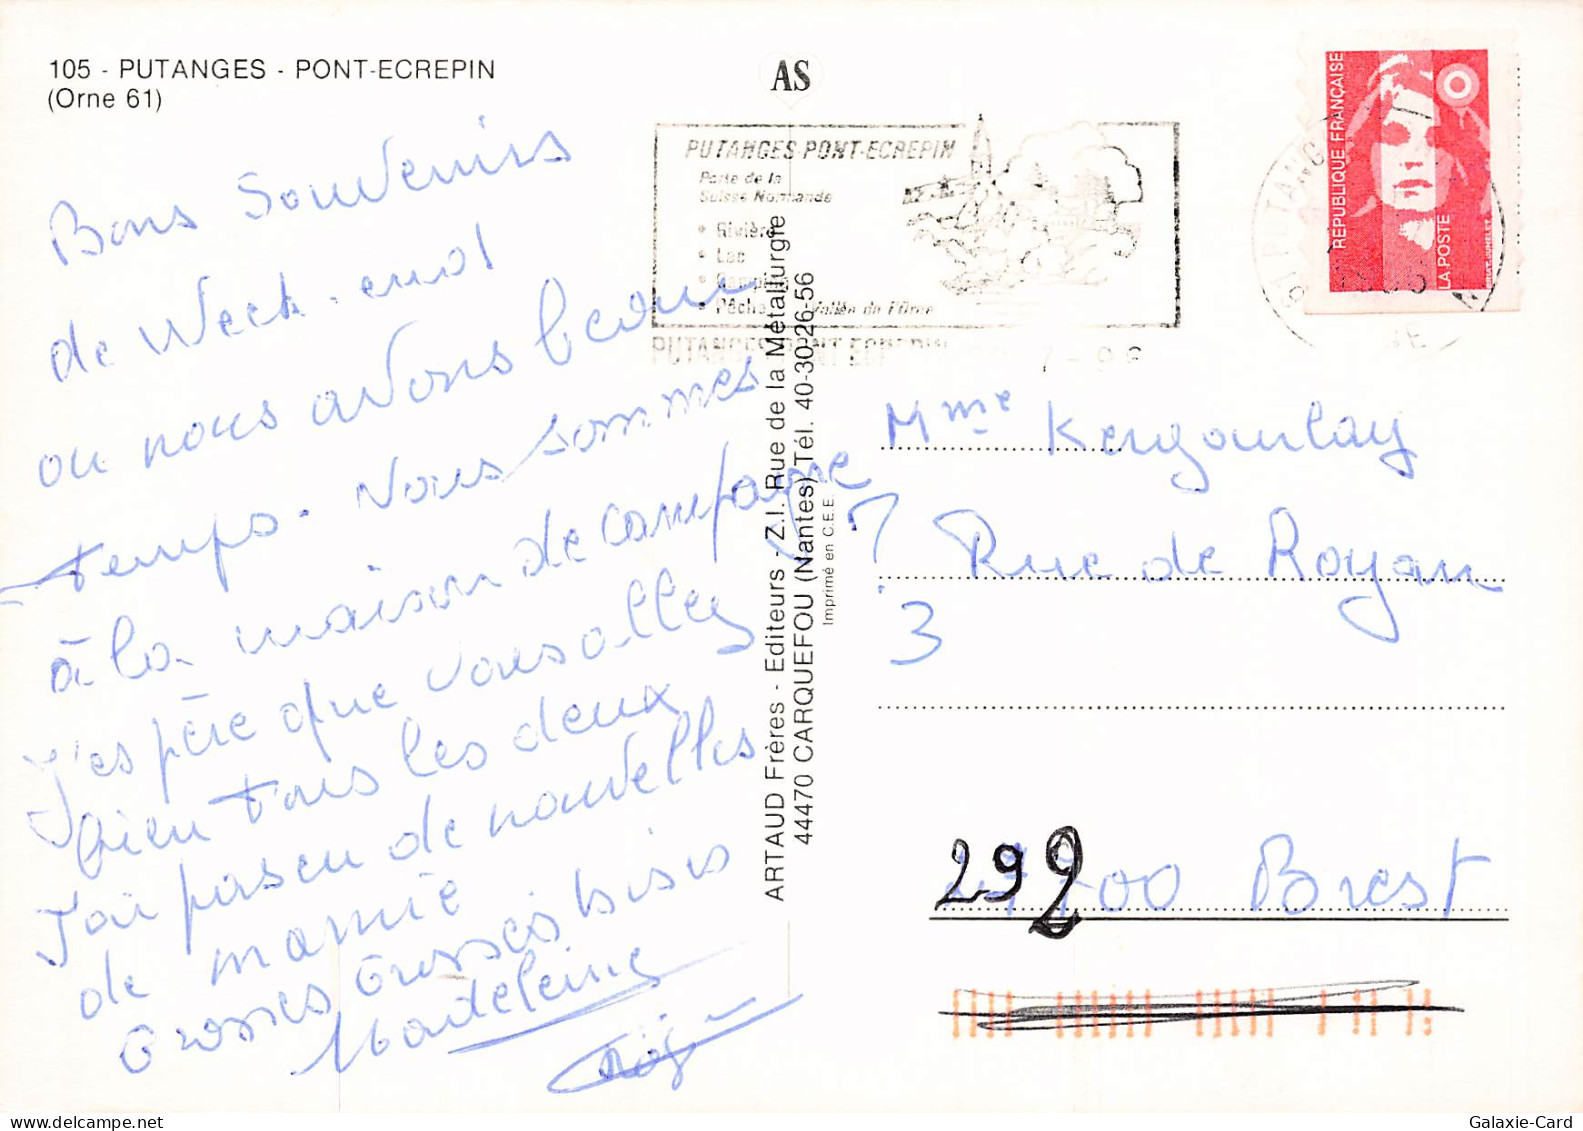 105 - PUTANGES - PONT-ECREPIN
(Orne 61)
AS
Bons Souvenirs
de Week-end
ou nous avons beau
temps. Nous sommes
à la maison de campagne
J'espère que vous allez
bien tous les deux
J'ai pas eu de nouvelles
de mamie
Grosses Grosses bisis
Madeleine
PUTANGES PONT-ECREPIN
Porte de la
Suisse Normande
• Rivière
• Lac
• Camping
• Pêche Vallée de l'Orne
PUTANGES PONT ECREPIN
7-96
REPUBLIQUE FRANÇAISE
LA POSTE
61 PUTANGES
ORNE
ARTAUD Frères - Editeurs - Z.I. Rue de la Métallurgie
44470 CARQUEFOU (Nantes) Tél. 40-30-26-56
Imprimé en C.E.E.
Mme Kergourlay
7 Rue de Royan
3
29200 Brest
Galaxie-Card